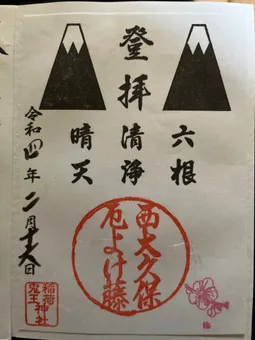 登拝
六根
清浄
晴天
西大久保
厄よけ藤
令和四年二月十六日
稲荷
鬼王
神社